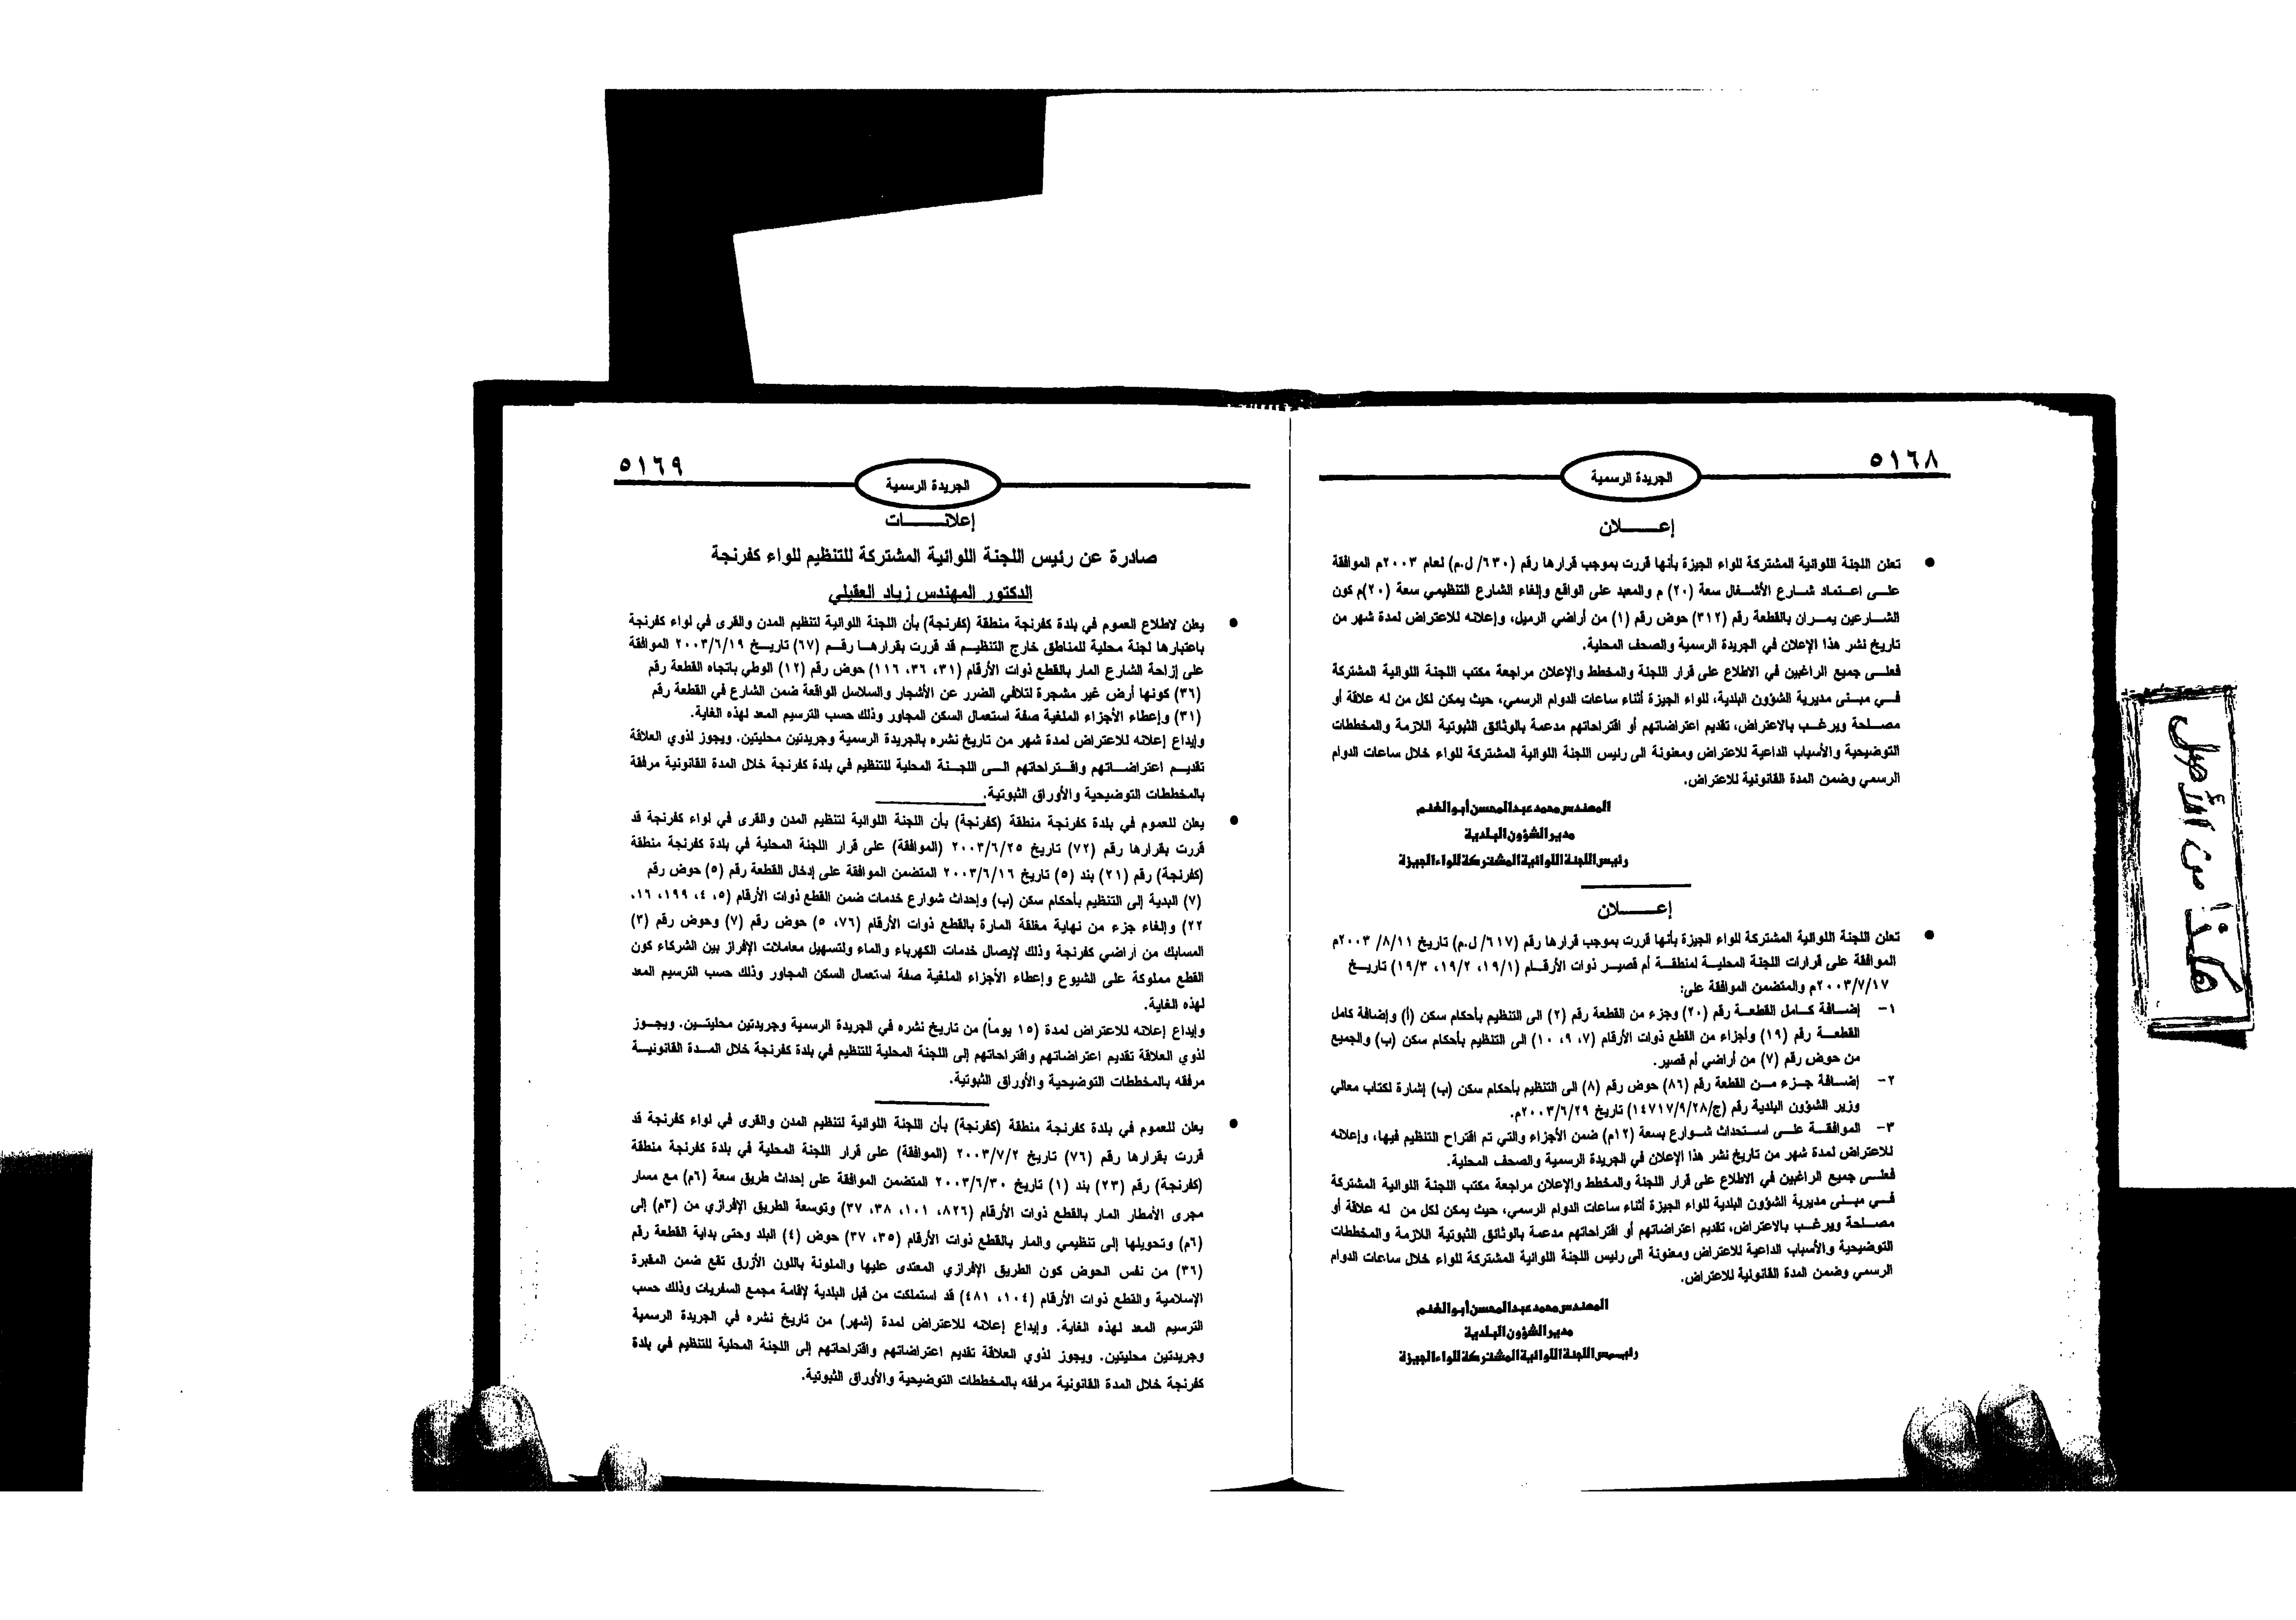 ٥١٦٨
الجريدة الرسمية
إعـــــلان
● تعلن اللجنة اللوائية المشتركة للواء الجيزة بأنها قررت بموجب قرارها رقم (٦٣٠/ ل.م) لعام ٢٠٠٣م الموافقة
علـــى اعـتماد شــارع الأشــغال سعة (٢٠) م والمعبد على الواقع وإلغاء الشارع التنظيمي سعة (٢٠)م كون
الشــارعين يمــران بالقطعة رقم (٣١٢) حوض رقم (١) من أراضي الرميل، وإعلانه للاعتراض لمدة شهر من
تاريخ نشر هذا الإعلان في الجريدة الرسمية والصحف المحلية.
فعلـــى جميع الراغبين في الاطلاع على قرار اللجنة والمخطط والإعلان مراجعة مكتب اللجنة اللوائية المشتركة
فـــي مبـنى مديرية الشؤون البلدية، للواء الجيزة أثناء ساعات الدوام الرسمي، حيث يمكن لكل من له علاقة أو
مصــلحة ويرغــب بالاعتراض، تقديم اعتراضاتهم أو اقتراحاتهم مدعمة بالوثائق الثبوتية اللازمة والمخططات
التوضيحية والأسباب الداعية للاعتراض ومعنونة الى رئيس اللجنة اللوائية المشتركة للواء خلال ساعات الدوام
الرسمي وضمن المدة القانونية للاعتراض.
المهندس محمد عبدالمحسن أبو الغنم
مدير الشؤون البلدية
رئيس اللجنة اللوائية المشتركة للواء الجيزة
إعـــــلان
● تعلن اللجنة اللوائية المشتركة للواء الجيزة بأنها قررت بموجب قرارها رقم (٦١٧/ ل.م) تاريخ ٨/١١/ ٢٠٠٣م
الموافقة على قرارات اللجنة المحليــة لمنطقــة أم قصيــر ذوات الأرقــام (١٩/١، ١٩/٢، ١٩/٣) تاريــخ
٢٠٠٣/٧/١٧م والمتضمن الموافقة على:
١- إضــافة كــامل القطعــة رقم (٢٠) وجزء من القطعة رقم (٢) الى التنظيم بأحكام سكن (أ) وإضافة كامل
القطعــة رقم (١٩) وأجزاء من القطع ذوات الأرقام (٧، ٩، ١٠) الى التنظيم بأحكام سكن (ب) والجميع
من حوض رقم (٧) من أراضي أم قصير.
٢- إضــافة جــزء مــن القطعة رقم (٨٦) حوض رقم (٨) الى التنظيم بأحكام سكن (ب) إشارة لكتاب معالي
وزير الشؤون البلدية رقم (ج/١٤٧١٧/٩/٢٨) تاريخ ٢٠٠٣/٦/٢٩م.
٣- الموافقــة علــى اســتحداث شــوارع بسعة (١٢م) ضمن الأجزاء والتي تم اقتراح التنظيم فيها، وإعلانه
للاعتراض لمدة شهر من تاريخ نشر هذا الإعلان في الجريدة الرسمية والصحف المحلية.
فعلـــى جميع الراغبين في الاطلاع على قرار اللجنة والمخطط والإعلان مراجعة مكتب اللجنة اللوائية المشتركة
فـــي مبـنى مديرية الشؤون البلدية للواء الجيزة أثناء ساعات الدوام الرسمي، حيث يمكن لكل من له علاقة أو
مصــلحة ويرغــب بالاعتراض، تقديم اعتراضاتهم أو اقتراحاتهم مدعمة بالوثائق الثبوتية اللازمة والمخططات
التوضيحية والأسباب الداعية للاعتراض ومعنونة الى رئيس اللجنة اللوائية المشتركة للواء خلال ساعات الدوام
الرسمي وضمن المدة القانونية للاعتراض.
المهندس محمد عبدالمحسن أبو الغنم
مدير الشؤون البلدية
رئيــس اللجنة اللوائية المشتركة للواء الجيزة
هكذا من الأصل
٥١٦٩
الجريدة الرسمية
إعلانـــــــات
صادرة عن رئيس اللجنة اللوائية المشتركة للتنظيم للواء كفرنجة
الدكتور المهندس زياد العقيلي
● يعلن لاطلاع العموم في بلدة كفرنجة منطقة (كفرنجة) بأن اللجنة اللوائية لتنظيم المدن والقرى في لواء كفرنجة
باعتبارها لجنة محلية للمناطق خارج التنظيــم قد قررت بقرارهــا رقــم (٦٧) تاريــخ ٢٠٠٣/٦/١٩ الموافقة
على إزاحة الشارع المار بالقطع ذوات الأرقام (٣١، ٣٦، ١١٦) حوض رقم (١٢) الوطي باتجاه القطعة رقم
(٣٦) كونها أرض غير مشجرة لتلافي الضرر عن الأشجار والسلاسل الواقعة ضمن الشارع في القطعة رقم
(٣١) وإعطاء الأجزاء الملغية صفة استعمال السكن المجاور وذلك حسب الترسيم المعد لهذه الغاية.
وإيداع إعلانه للاعتراض لمدة شهر من تاريخ نشره بالجريدة الرسمية وجريدتين محليتين. ويجوز لذوي العلاقة
تقديــم اعتراضــاتهم واقــتراحاتهم الــى اللجــنة المحلية للتنظيم في بلدة كفرنجة خلال المدة القانونية مرفقة
بالمخططات التوضيحية والأوراق الثبوتية.
● يعلن للعموم في بلدة كفرنجة منطقة (كفرنجة) بأن اللجنة اللوائية لتنظيم المدن والقرى في لواء كفرنجة قد
قررت بقرارها رقم (٧٢) تاريخ ٢٠٠٣/٦/٢٥ (الموافقة) على قرار اللجنة المحلية في بلدة كفرنجة منطقة
(كفرنجة) رقم (٢١) بند (٥) تاريخ ٢٠٠٣/٦/١٦ المتضمن الموافقة على إدخال القطعة رقم (٥) حوض رقم
(٧) البدية إلى التنظيم بأحكام سكن (ب) وإحداث شوارع خدمات ضمن القطع ذوات الأرقام (٥، ٤، ١٩٩، ١٦،
٢٢) وإلغاء جزء من نهاية مغلقة المارة بالقطع ذوات الأرقام (٧٦، ٥) حوض رقم (٧) وحوض رقم (٣)
المسابك من أراضي كفرنجة وذلك لإيصال خدمات الكهرباء والماء ولتسهيل معاملات الإفراز بين الشركاء كون
القطع مملوكة على الشيوع وإعطاء الأجزاء الملغية صفة استعمال السكن المجاور وذلك حسب الترسيم المعد
لهذه الغاية.
وإيداع إعلانه للاعتراض لمدة (١٥ يوماً) من تاريخ نشره في الجريدة الرسمية وجريدتين محليتــين. ويجــوز
لذوي العلاقة تقديم اعتراضاتهم واقتراحاتهم إلى اللجنة المحلية للتنظيم في بلدة كفرنجة خلال المــدة القانونيــة
مرفقه بالمخططات التوضيحية والأوراق الثبوتية.
● يعلن للعموم في بلدة كفرنجة منطقة (كفرنجة) بأن اللجنة اللوائية لتنظيم المدن والقرى في لواء كفرنجة قد
قررت بقرارها رقم (٧٦) تاريخ ٢٠٠٣/٧/٢ (الموافقة) على قرار اللجنة المحلية في بلدة كفرنجة منطقة
(كفرنجة) رقم (٢٣) بند (١) تاريخ ٢٠٠٣/٦/٣٠ المتضمن الموافقة على إحداث طريق سعة (٦م) مع مسار
مجرى الأمطار المار بالقطع ذوات الأرقام (٨٢٦، ١٠١، ٣٨، ٣٧) وتوسعة الطريق الإفرازي من (٣م) إلى
(٦م) وتحويلها إلى تنظيمي والمار بالقطع ذوات الأرقام (٣٥، ٣٧) حوض (٤) البلد وحتى بداية القطعة رقم
(٣٦) من نفس الحوض كون الطريق الإفرازي المعتدى عليها والملونة باللون الأزرق تقع ضمن المقبرة
الإسلامية والقطع ذوات الأرقام (١٠٤، ٤٨١) قد استملكت من قبل البلدية لإقامة مجمع السفريات وذلك حسب
الترسيم المعد لهذه الغاية. وإيداع إعلانه للاعتراض لمدة (شهر) من تاريخ نشره في الجريدة الرسمية
وجريدتين محليتين. ويجوز لذوي العلاقة تقديم اعتراضاتهم واقتراحاتهم إلى اللجنة المحلية للتنظيم في بلدة
كفرنجة خلال المدة القانونية مرفقه بالمخططات التوضيحية والأوراق الثبوتية.